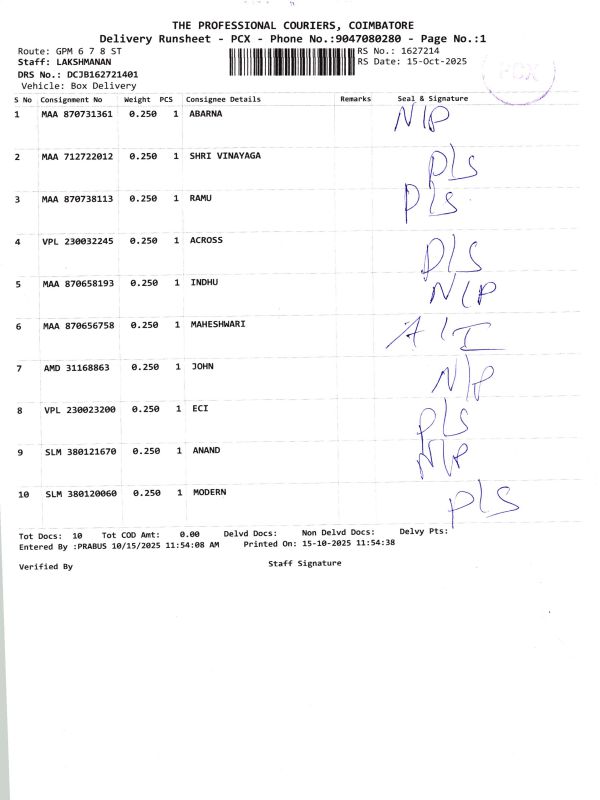 THE PROFESSIONAL COURIERS, COIMBATORE
Delivery Runsheet - PCX - Phone No.:9047080280 - Page No.:1
Route: GPM 6 7 8 ST
RS No.: 1627214
Staff: LAKSHMANAN
RS Date: 15-Oct-2025
DRS No.: DCJB162721401
Vehicle: Box Delivery
PCX
S No Consignment No Weight PCS Consignee Details Remarks Seal & Signature
1 MAA 870731361 0.250 1 ABARNA N/P
2 MAA 712722012 0.250 1 SHRI VINAYAGA P/S
3 MAA 870738113 0.250 1 RAMU P/S
4 VPL 230032245 0.250 1 ACROSS D/S
5 MAA 870658193 0.250 1 INDHU N/P
6 MAA 870656758 0.250 1 MAHESHWARI A/I
7 AMD 31168863 0.250 1 JOHN N/P
8 VPL 230023200 0.250 1 ECI P/S
9 SLM 380121670 0.250 1 ANAND N/P
10 SLM 380120060 0.250 1 MODERN P/S
Tot Docs: 10 Tot COD Amt: 0.00 Delvd Docs: Non Delvd Docs: Delvy Pts:
Entered By :PRABUS 10/15/2025 11:54:08 AM Printed On: 15-10-2025 11:54:38
Verified By Staff Signature